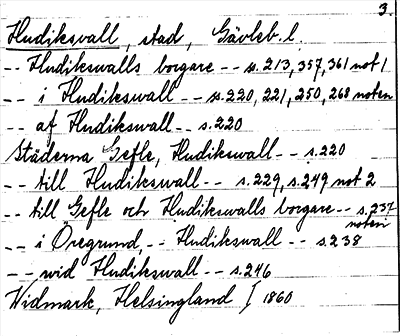 3.
Hudiksvall, stad, Gävleb. l.
-- Hudikswalls borgare -- s. 213, 357, 361 not 1
-- i Hudikswall -- s. 220, 221, 250, 268 noten
-- af Hudikswall -- s. 220
Städerna Gefle, Hudikswall -- s. 220
-- till Hudikswall -- s. 229, s. 249 not 2
-- till Gefle och Hudikswalls borgare -- s. 237 noten
-- i Öregrund -- Hudikswall -- s. 238
-- wid Hudikswall -- s. 246
Widmark, Helsingland I 1860